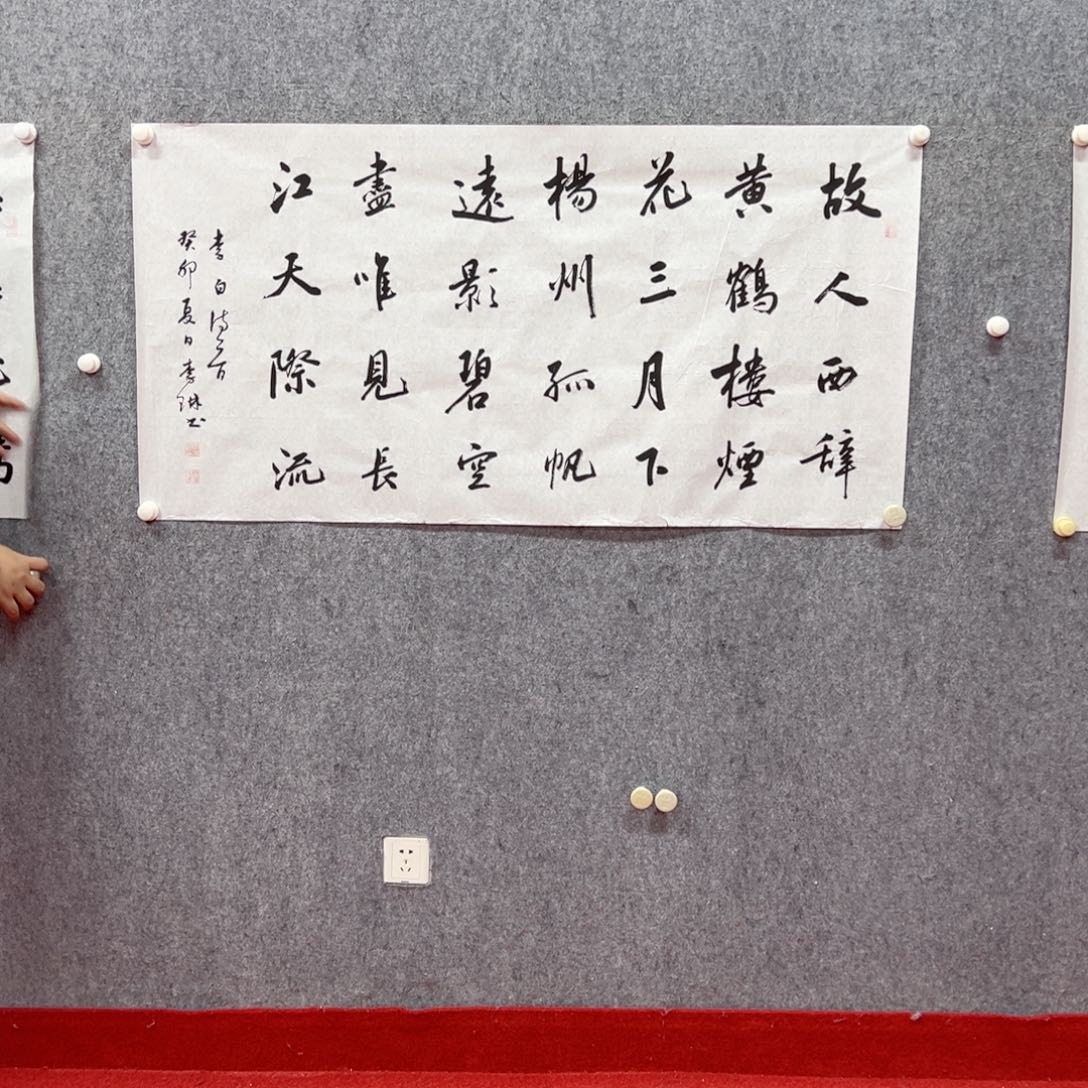 故人西辞
黄鶴樓煙
花三月下
楊州孤帆
遠影碧空
盡唯見長
江天際流
李白詩一首
癸卯夏日李琳书